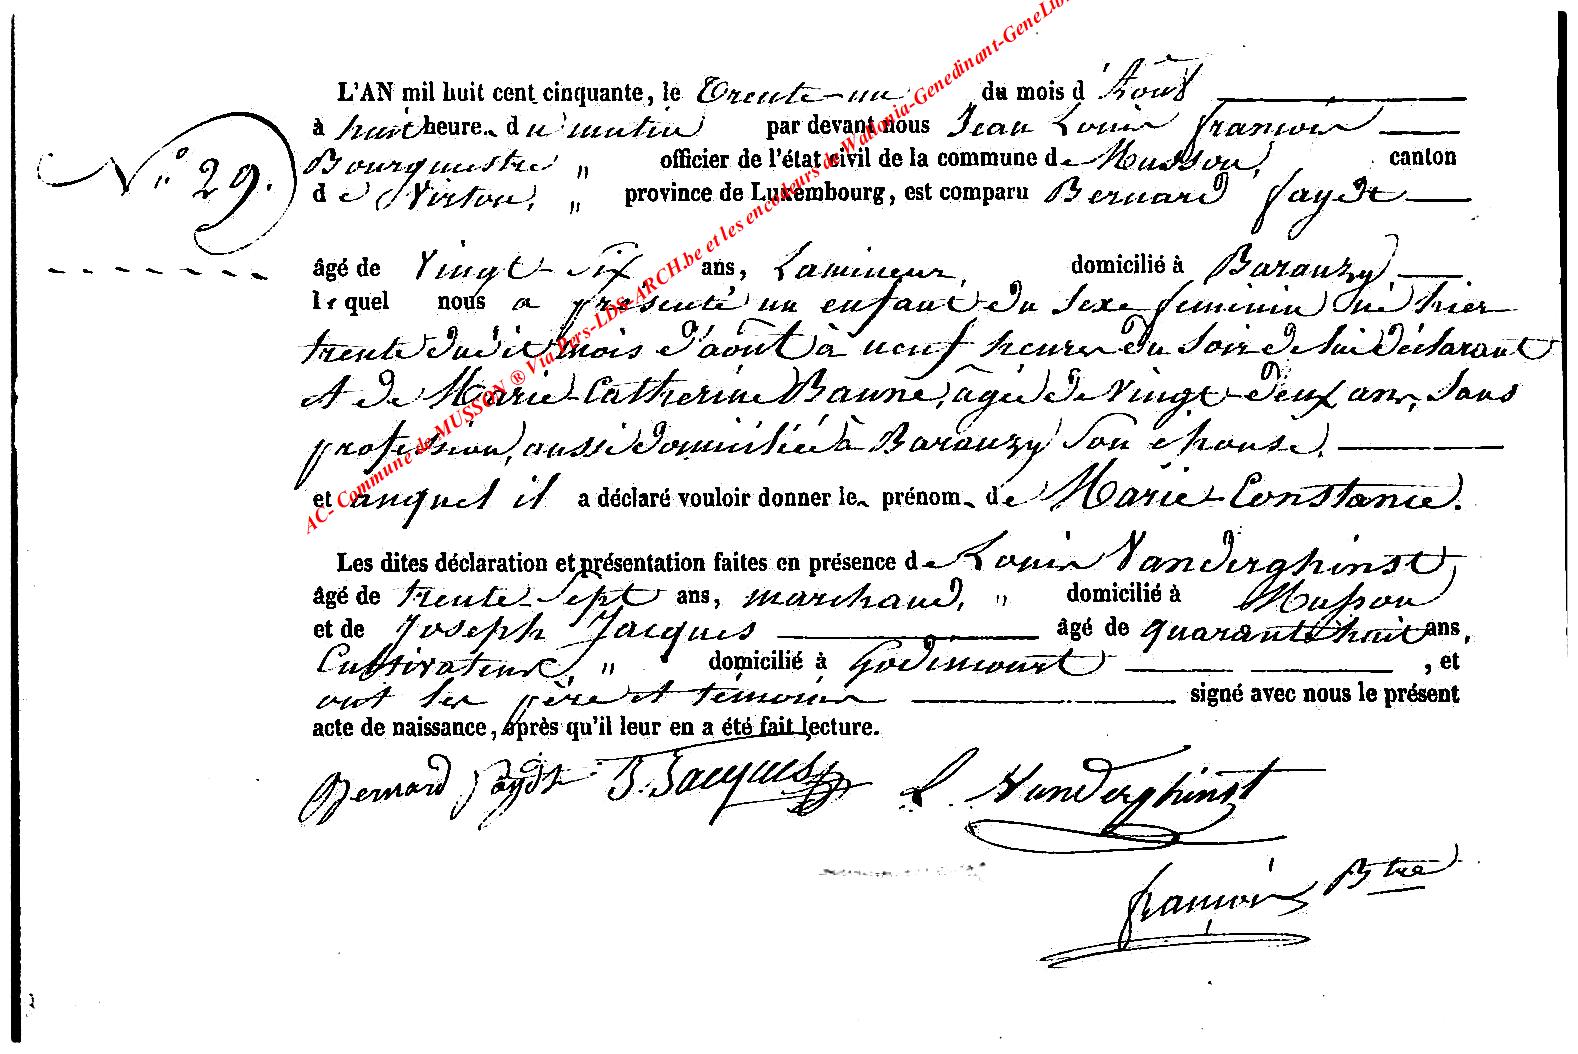 L'AN mil huit cent cinquante, le Trente-un du mois d'Août
à huit heure s du matin par devant nous Jean Louis François
N.° 29. Bourgmestre " officier de l'état civil de la commune de Musson, canton
de Virton, " province de Luxembourg, est comparu Bernard Faydt
âgé de Vingt-Six ans, Lamineur, domicilié à Baranzy
lequel nous a présenté un enfant du Sexe féminin né hier
trente dudit mois d'août à neuf heures du Soir de lui déclarant
et de Marie-Catherine Baune, âgée de Vingt-deux ans, Sans
profession, aussi domiciliée à Baranzy Son épouse.
et auquel il a déclaré vouloir donner les prénoms de Marie-Constance.
Les dites déclaration et présentation faites en présence de Louis Vanderghinst,
âgé de trente-Sept ans, marchand, " domicilié à Musson
et de Joseph Jacques âgé de quarante huit ans,
Cultivateur, " domicilié à Godincourt , et
ont les père et témoins signé avec nous le présent
acte de naissance, après qu'il leur en a été fait lecture.
Bernard Faydt J. Jacques L. Vanderghinst
François Btre
AC- Commune de MUSSON ® Via Pers-LDS-ARCH.be et les encodeurs de Wallonia-Genedinant-GeneLib